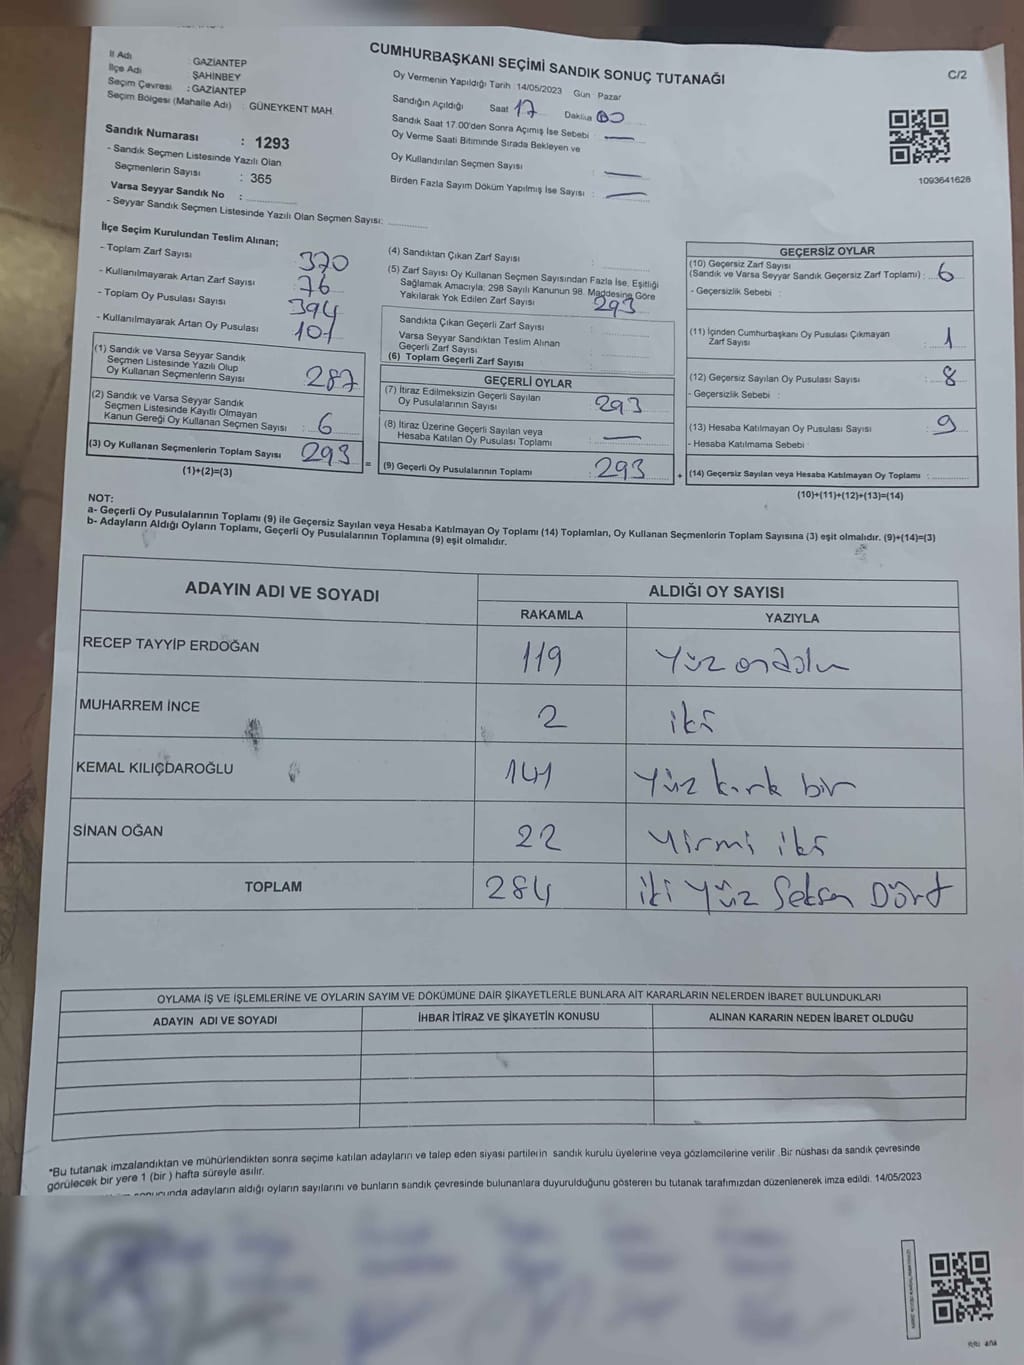 CUMHURBAŞKANI SEÇİMİ SANDIK SONUÇ TUTANAĞI
C/2
İl Adı : GAZİANTEP
İlçe Adı : ŞAHİNBEY
Seçim Çevresi : GAZİANTEP
Seçim Bölgesi (Mahalle Adı) : GÜNEYKENT MAH.
Sandık Numarası : 1293
- Sandık Seçmen Listesinde Yazılı Olan
Seçmenlerin Sayısı : 365
Varsa Seyyar Sandık No :
- Seyyar Sandık Seçmen Listesinde Yazılı Olan Seçmen Sayısı:
Oy Vermenin Yapıldığı Tarih : 14/05/2023 Gün : Pazar
Sandığın Açıldığı Saat 17 Dakika 00
Sandık Saat 17.00'den Sonra Açımış İse Sebebi : —
Oy Verme Saati Bitiminde Sırada Bekleyen ve
Oy Kullandırılan Seçmen Sayısı : —
Birden Fazla Sayım Döküm Yapılmış İse Sayısı : —
1093641628
İlçe Seçim Kurulundan Teslim Alınan;
- Toplam Zarf Sayısı 370
- Kullanılmayarak Artan Zarf Sayısı 76
- Toplam Oy Pusulası Sayısı 394
- Kullanılmayarak Artan Oy Pusulası 101
(1) Sandık ve Varsa Seyyar Sandık
Seçmen Listesinde Yazılı Olup
Oy Kullanan Seçmenlerin Sayısı : 287
(2) Sandık ve Varsa Seyyar Sandık
Seçmen Listesinde Kayıtlı Olmayan
Kanun Gereği Oy Kullanan Seçmen Sayısı : 6
(3) Oy Kullanan Seçmenlerin Toplam Sayısı 293
(1)+(2)=(3)
=
(4) Sandıktan Çıkan Zarf Sayısı :
(5) Zarf Sayısı Oy Kullanan Seçmen Sayısından Fazla İse, Eşitliği
Sağlamak Amacıyla; 298 Sayılı Kanunun 98. Maddesine Göre
Yakılarak Yok Edilen Zarf Sayısı : 293
Sandıkta Çıkan Geçerli Zarf Sayısı :
Varsa Seyyar Sandıktan Teslim Alınan
Geçerli Zarf Sayısı :
(6) Toplam Geçerli Zarf Sayısı :
GEÇERLİ OYLAR
(7) İtiraz Edilmeksizin Geçerli Sayılan
Oy Pusulalarının Sayısı 293
(8) İtiraz Üzerine Geçerli Sayılan veya
Hesaba Katılan Oy Pusulası Toplamı : —
(9) Geçerli Oy Pusulalarının Toplamı : 293
+
GEÇERSİZ OYLAR
(10) Geçersiz Zarf Sayısı
(Sandık ve Varsa Seyyar Sandık Geçersiz Zarf Toplamı) : 6
- Geçersizlik Sebebi :
(11) İçinden Cumhurbaşkanı Oy Pusulası Çıkmayan
Zarf Sayısı : 1
(12) Geçersiz Sayılan Oy Pusulası Sayısı : 8
- Geçersizlik Sebebi :
(13) Hesaba Katılmayan Oy Pusulası Sayısı : 9
- Hesaba Katılmama Sebebi :
(14) Geçersiz Sayılan veya Hesaba Katılmayan Oy Toplamı :
(10)+(11)+(12)+(13)=(14)
NOT:
a- Geçerli Oy Pusulalarının Toplamı (9) ile Geçersiz Sayılan veya Hesaba Katılmayan Oy Toplamı (14) Toplamları, Oy Kullanan Seçmenlerin Toplam Sayısına (3) eşit olmalıdır. (9)+(14)=(3)
b- Adayların Aldığı Oyların Toplamı, Geçerli Oy Pusulalarının Toplamına (9) eşit olmalıdır.
ADAYIN ADI VE SOYADI
ALDIĞI OY SAYISI
RAKAMLA YAZIYLA
RECEP TAYYİP ERDOĞAN 119 Yüz ondolu
MUHARREM İNCE 2 iki
KEMAL KILIÇDAROĞLU 141 Yüz kırk bir
SİNAN OĞAN 22 Yirmi iki
TOPLAM 284 iki Yüz Seksen Dört
OYLAMA İŞ VE İŞLEMLERİNE VE OYLARIN SAYIM VE DÖKÜMÜNE DAİR ŞİKAYETLERLE BUNLARA AİT KARARLARIN NELERDEN İBARET BULUNDUKLARI
ADAYIN ADI VE SOYADI İHBAR İTİRAZ VE ŞİKAYETİN KONUSU ALINAN KARARIN NEDEN İBARET OLDUĞU
*Bu tutanak imzalandıktan ve mühürlendikten sonra seçime katılan adayların ve talep eden siyasi partilerin sandık kurulu üyelerine veya gözlemcilerine verilir .Bir nüshası da sandık çevresinde
görülecek bir yere 1 (bir ) hafta süreyle asılır.
sonucunda adayların aldığı oyların sayılarını ve bunların sandık çevresinde bulunanlara duyurulduğunu gösteren bu tutanak tarafımızdan düzenlenerek imza edildi. 14/05/2023